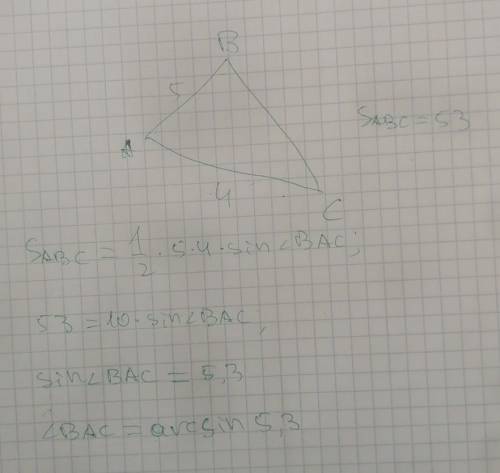 B
5
A
4
C
S_ABC = 53
S_ABC = 1/2 · 5 · 4 · sin∠BAC;
53 = 10 · sin∠BAC,
sin∠BAC = 5,3
∠BAC = arcsin 5,3